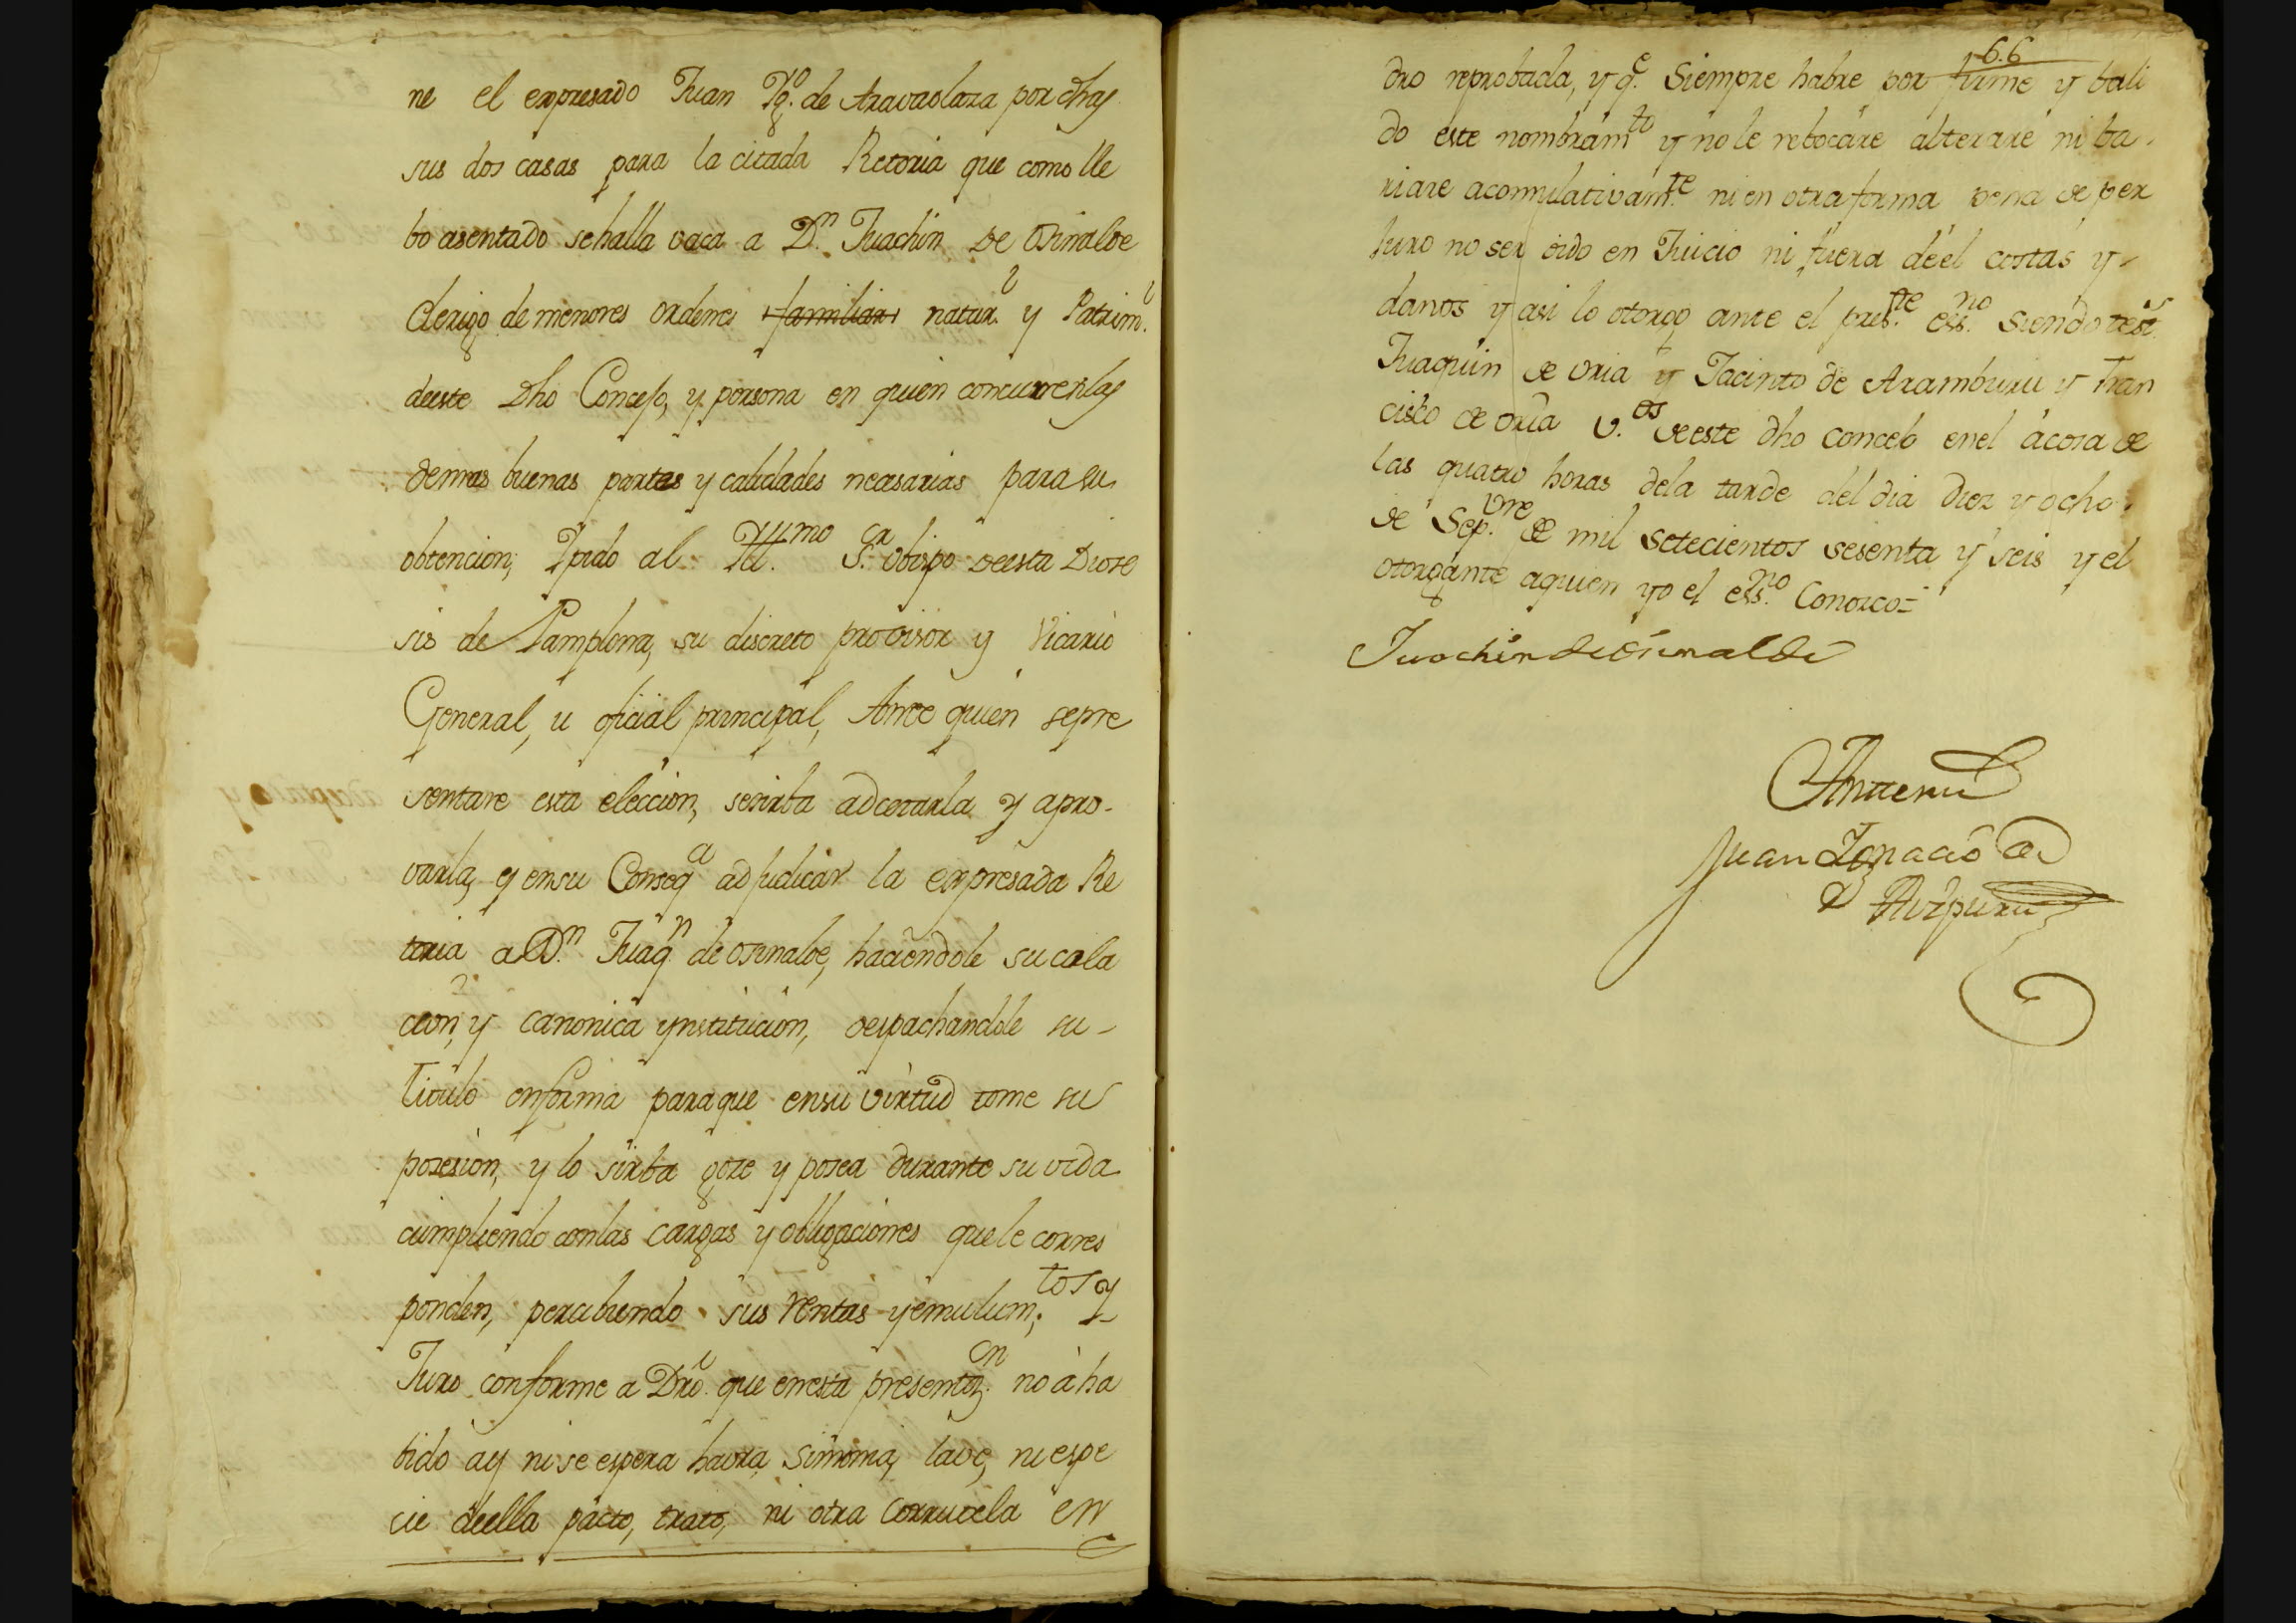 ne el expresado Juan Ygº. de Aravaolaza por dhas
sus dos casas para la citada Retoria que como lle
bo asentado se halla vaca a Dn. Juachin de Osinalde
clerigo de menores ordenes familiar natur.l y Patrim.l
deeste Dho Concejo, y persona en quien concurren las
demas buenas partes y calidades necesarias para su
obtencion, Y pido al Ill.mo S.or obispo deesta Dioze
sis de Pamplona, su discreto provisor y Vicario
General, u oficial principal, Ante quien sepre
sentare esta eleccion, sesirba adcorarla y apro-
varla, y ensu Conseq.a adjudicar la expresada Re
toria a Dn. Juaq.n de osinalde, haciendole su cola
cion, y canonica ynstitucion, despachandole su-
Titulo enforma paraque ensu virtud tome su
posesion, y lo sirba goze y posea durante su vida
cumpliendo conlas cargas y obligaciones quele corres
ponden, percibiendo sus rentas yemulum.tos y
Juro conforme a Dro. que enesta presentaz.on no à ha
bido ay ni se espera havra simonia, lave, ni espe
cie deella pacto, trato, ni otra corrutela en
166
dro reprobada, y q.e Siempre habre por firme y bali
do este nombram.to y no le rebocare alterare ni ba-
riare acomulativam.te ni en otra forma pena de per
juro no ser oido en Juicio ni fuera deel costas y-
danos y asi lo otorgo ante el pres.te ess.no siendo test.s
Juaquin de oria y Jacinto de Aramburu y Fran
cisco de oria v.os deeste dho concejo enel acosa de
las quatro horas dela tarde del dia diez y ocho
de Sep.bre de mil setecientos sesenta y seis y el
otorgante aquien yo el ess.no Conozco=
Juachin de Osinalde
Antemi
Juan Ignacio de
Aizpuru